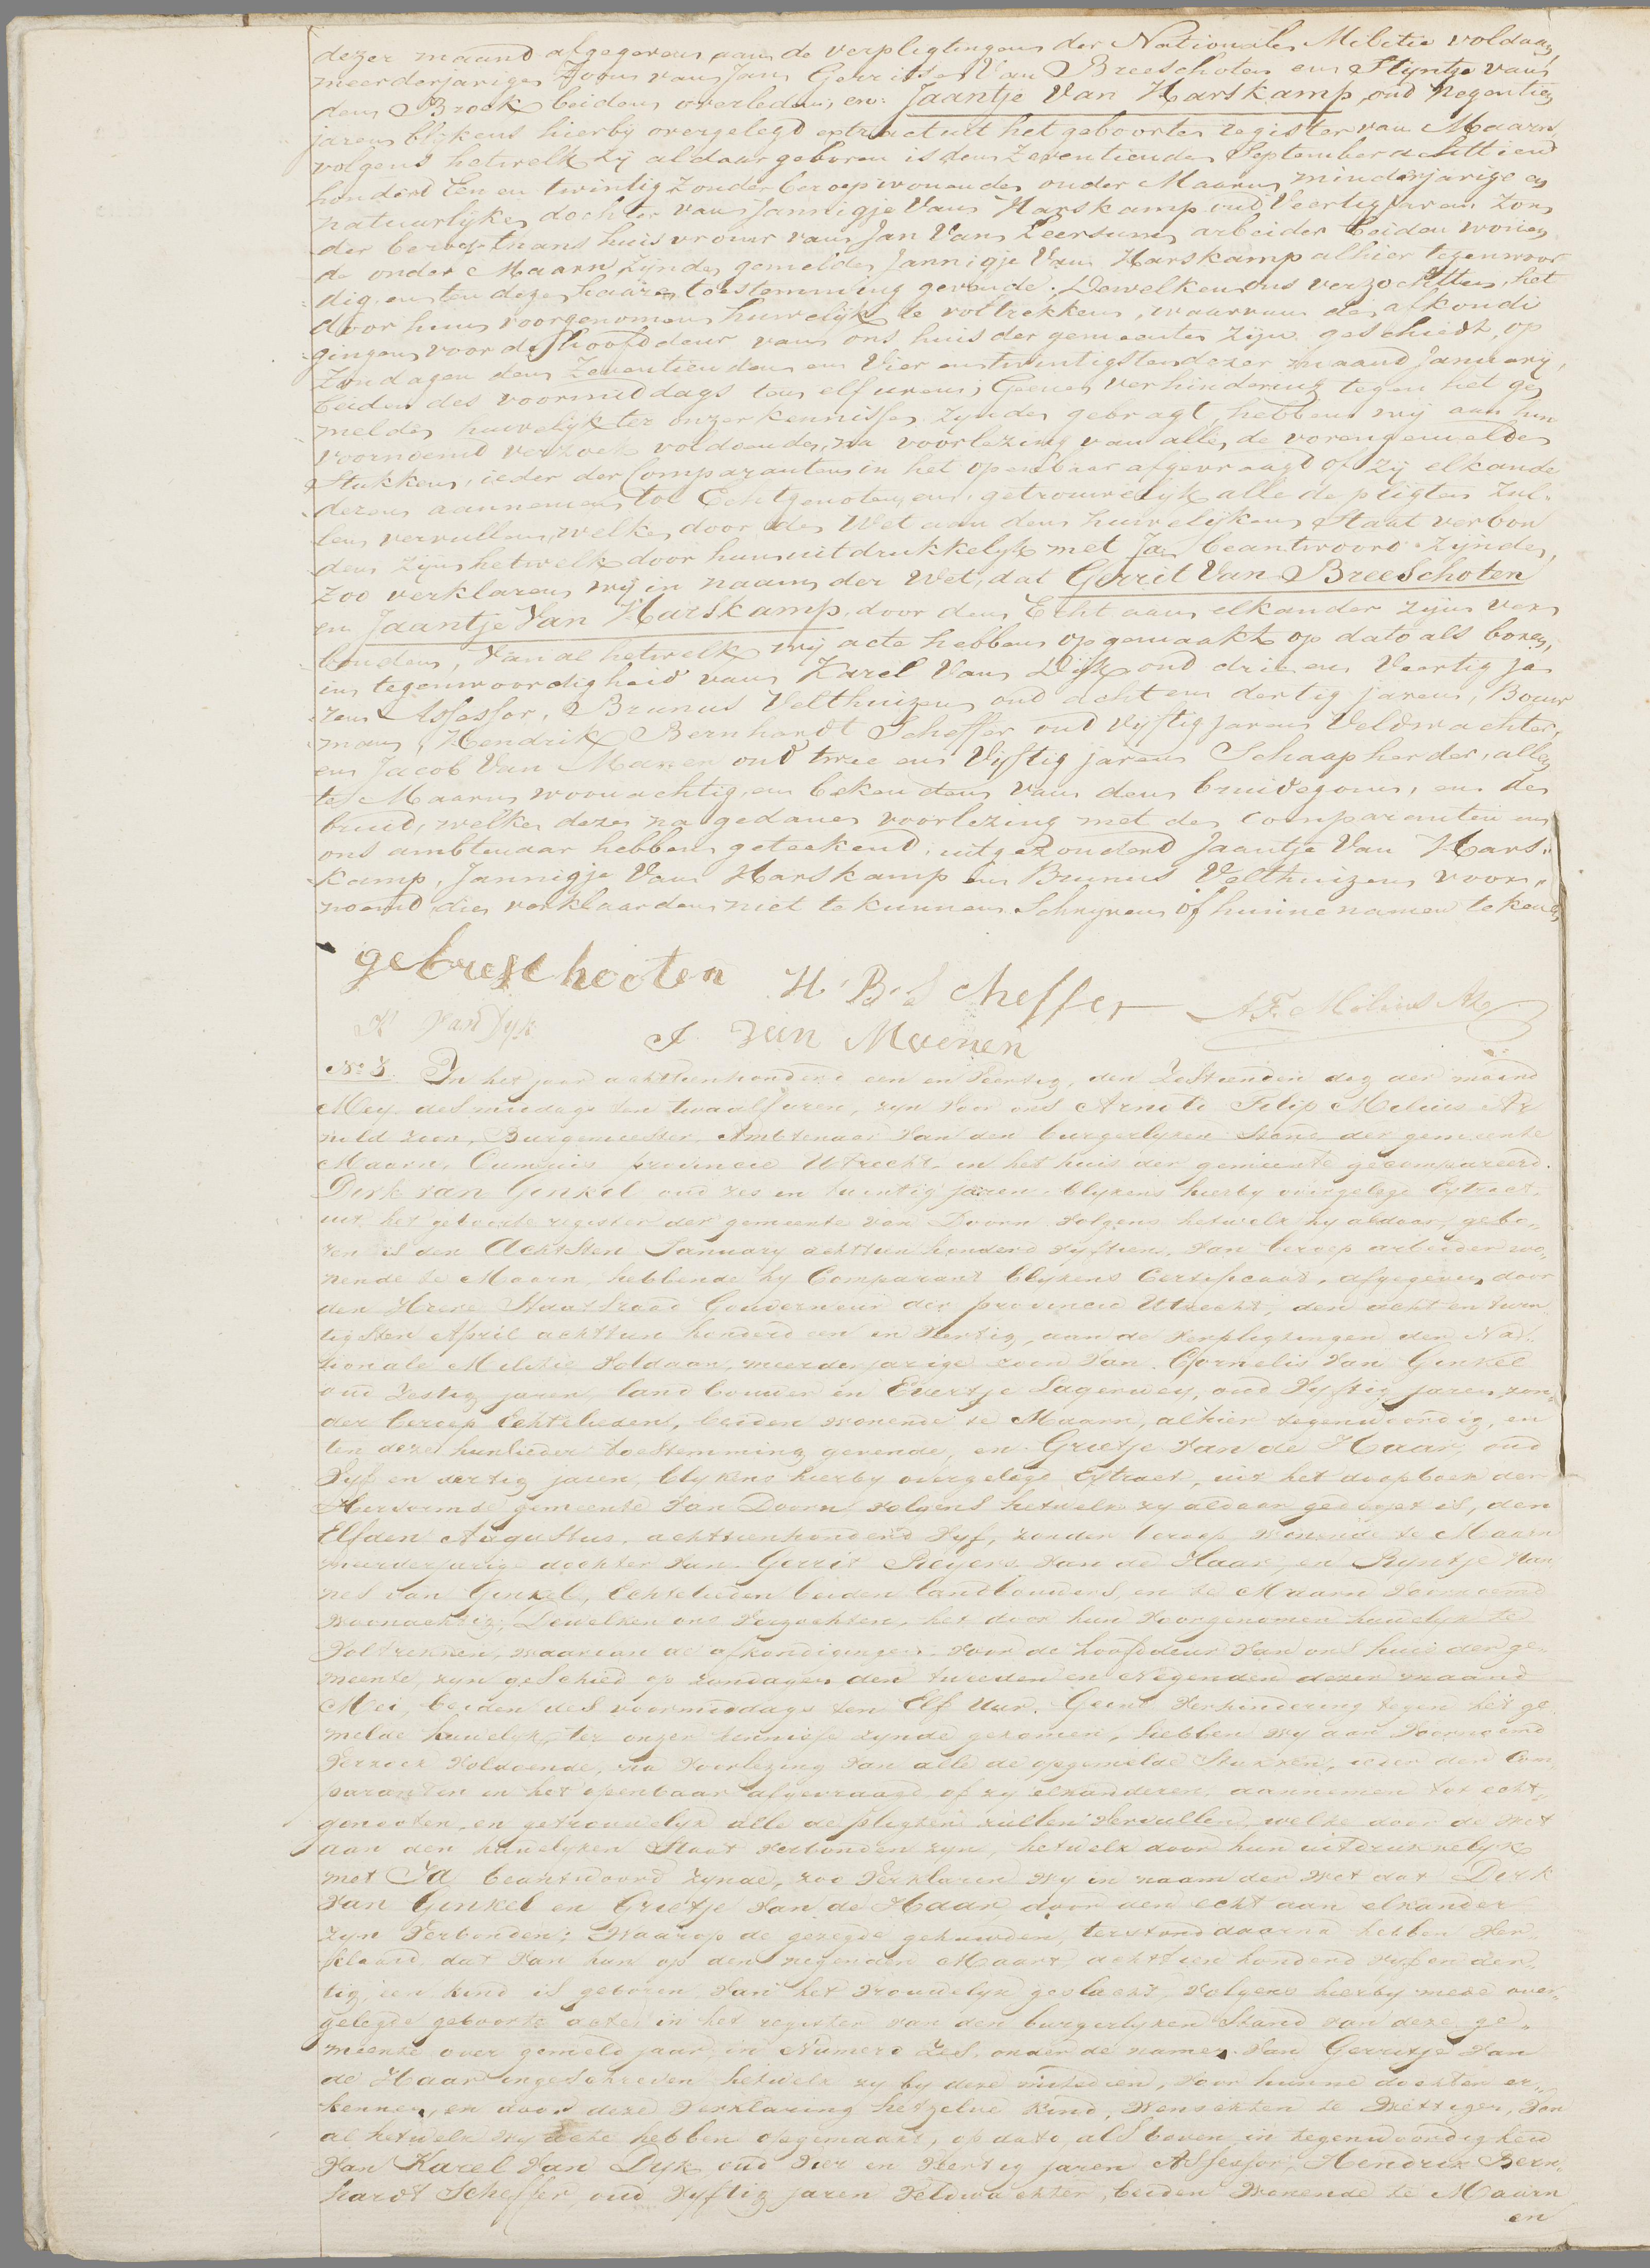 dezer maand afgegeven aan de verpligtingen der Nationale Militie voldaan,
meerderjarige Zoon van Jan Gerritse Van Breeschoten en Stijntje van
den Broek beiden overleden, en: Jaantje Van Harskamp oud negentien
jaren blijkens hierbij overgelegd extract uit het geboorte register van Maarn
volgens hetwelk zij aldaar geboren is den Zeventienden September achttien
honderd Een en twintig Zonder beroep wonende onder Maarn, minderjarige en
natuurlijke dochter van Jannigje Van Harskamp oud Veertig jaren Zon
der beroep thans huisvrouw van Jan Van Leersum arbeider beiden wonen
de onder Maarn zijnde gemelde Jannigje Van Harskamp alhier tegenwoor
dig, en ten deze haare toestemming gevende; Dewelken ons verzochten, het
door hun voorgenomen huwelijk te voltrekken, waarvan de afkondi
gingen voor de hoofddeur van ons huis der gemeente zijn geschiedt, op
Zondagen den Zeventienden en Vier en twintigsten dezer maand January,
beiden des voormiddags ten elf uren; Geene verhindering tegen het ge
melde huwelijk ter onzer kennisse zijnde gebragt, hebben wij aan hun
voornoemd verzoek voldoende, na voorlezing van alle de vorengemelde
Stukken, ieder der Comparanten in het openbaar afgevraagd of zij elkande
deren aannemen tot Echtgenoten, en getrouwelijk alle de pligten zul-
len vervullen, welke door de Wet aan den huwelijken Staat verbon
den zijn hetwelk door hun uitdrukkelijk met Ja beantwoord zijnde,
Zoo verklaren wij in naam der Wet, dat Gerrit Van BreeSchoten
en Jaantje Van Harskamp, door den Echt aan elkander zijn ver
bonden, Van al hetwelk wij acte hebben opgemaakt op dato als boven,
in tegenwoordigheid van Karel Van Dijk oud drie en Veertig ja
ren Assessor, Brunus Velthuizen oud acht en dertig jaren, Bouw
man, Hendrik Bernhardt Scheffer oud Vijftig jaren Veldwachter,
en Jacob Van Manen oud twee en Vijftig jaren Schaapherder, alle
te Maarn woonachtig, en bekenden van den bruidegom, en de
bruid, welke deze na gedane voorlezing met de comparanten en
ons ambtenaar hebben geteekend, uitgezonderd Jaantje Van Hars-
kamp, Jannigje Van Harskamp en Brunus Velthuizen voor-
noemd die verklaarden niet te kunnen Schrijven of hunne namen tekenen
H. B. Scheffer A.F. Melius Az
K van Dyk J. van Maenen
No. 3. In het jaar achttienhonderd een en Veertig, den Zestienden dag der maand
Mey des middags ten twaalf uren, zyn voor ons Arnold Filip Melius Ar
nold zoon, Burgemeester, Ambtenaar van den burgerlyken Stand der gemeente
Maarn, Cumuis provincie Utrecht, in het huis der gemeente gecompareerd.
Dirk van Ginkel oud zes en twintig jaren, blykens hierby overgelegd Extract
uit het geboorte register der gemeente van Doorn volgens hetwelk hy aldaar gebo-
ren is den Achtsten January achttien honderd vyftien, van beroep arbeider wo-
nende te Maarn, hebbende hy Comparant blykens Certificaat, afgegeven door
den Heere Staatsraad Gouverneur der provincie Utrecht, den acht en twin
tigsten April achttien honderd een en Veertig, aan de verpligtingen der Na-
tionale Militie voldaan, meerderjarige zoon van Cornelis van Ginkel
oud Zestig jaren, landbouwer en Evertje Lagerwey, oud Vyftig jaren, zon-
der beroep Echtelieden, beiden wonende te Maarn, alhier tegenwoordig, en
ten deze hunlieder toestemming gevende, en Grietje van de Haar, oud
Vyf en dertig jaren, blykens hierby overgelegd Extract, uit het doopboek der
Hervormde gemeente van Doorn volgens hetwelk zy aldaar gedoopt is, den
Elfden Augustus, achttienhonderd Vyf, zonder beroep wonende te Maarn
meerderjarige dochter van Gerrit Reyers van de Haar, en Ryntje Han
nes van Ginkel, Echtelieden beiden landbouwers, en te Maarn voornoemd
woonachtig; Dewelken ons verzochten, het door hun voorgenomen huwelyk te
voltrekken, waarvan de afkondigingen voor de hoofddeur van ons huis der ge-
meente, zyn geschied op zondagen den tweeden en Negenden dezer maand
Mei, beiden des voormiddags ten Elf Uur. Geene verhindering tegen het ge
melde huwelyk, ter onzer kennisse zynde gekomen, hebben wy aan voornoemd
verzoek voldoende, na voorlezing van alle de opgemelde Stukken, ieder der Com
paranten in het openbaar afgevraagd of zy elkanderen aannemen tot echt-
genooten, en getrouwelyk alle de pligten zullen vervullen, welke door de wet
aan den huwelyken Staat verbonden zyn, hetwelk door hun uitdrukkelyk
met Ja, beantwoord zynde, zoo verklaren wy in naam der Wet dat Dirk
van Ginkel en Grietje van de Haar, door den echt aan elkander
zyn verbonden; Waarop de gezegde gehuwden, terstond daarna hebben ver-
klaard, dat van hun op den negenden Maart, achttien honderd vyf en der-
tig, een kind is geboren van het vrouwelyk geslacht, volgens hierby mede over-
gelegde geboorte acte, in het register van den burgerlyken Stand van deze ge-
meente over gemeld jaar, in Numero Zes, onder de namen van Gerritje van
de Haar ingeschreven hetwelk zy by deze mitsdien, voor hunne dochter er-
kennen, en door deze verklaring hetzelve kind, wenschten te Wettigen, Van
al hetwelk wy acte hebben opgemaakt, op dato als boven in tegenwoordigheid
van Karel van Dyk oud Vier en Veertig jaren Assessor, Hendrik Bern-
hardt Scheffer, oud Vyftig jaren Veldwachter, beiden wonende te Maarn
en